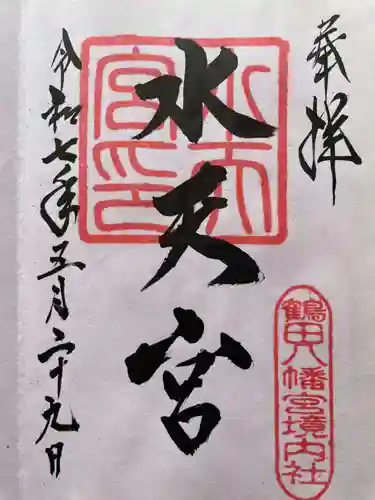 奉拝
鶴田八幡宮境内社
水天宮
水天宮印
令和七年五月二十九日